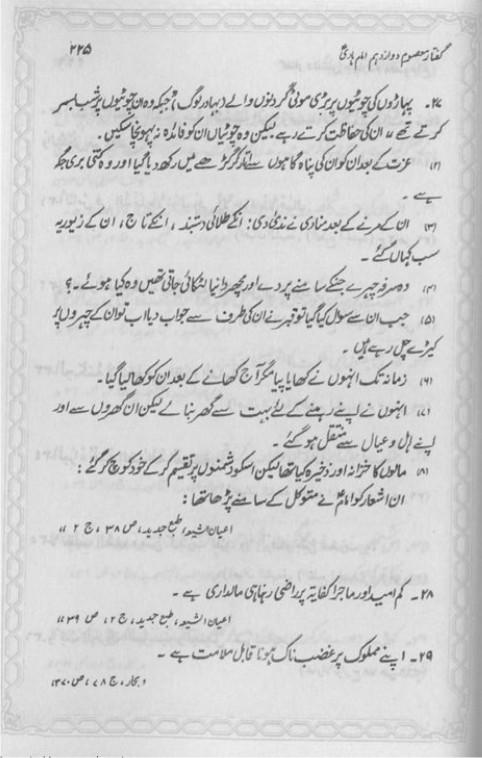 ۲۲۵
گفتار معصوم دوازدہم امام ہادیؑ
۲۷۔ پہاڑوں کی چوٹیوں پر بڑی موٹی گردنوں والے (بہادر لوگ) جبکہ وہ ان چوٹیوں پر شب بسر
کرتے تھے، ان کی حفاظت کرتے رہے لیکن وہ چوٹیاں ان کو فائدہ نہ پہونچا سکیں۔
(۲) عزت کے بعد ان کو ان کی پناہ گاہوں سے اتار کر گڑھے میں رکھ دیا گیا اور وہ کتنی بری جگہ
ہے۔
(۳) ان کے مرنے کے بعد منادی نے ندی دی: انکے طلائی دستبند، انکے تاج، ان کے زیور یہ
سب کہاں گئے۔
(۴) وہ چہرے جنکے سامنے پردے اور مچھر دانیا لٹکائی جاتی تھیں وہ کیا ہوئے۔؟
(۵) جب ان سے سوال کیا گیا تو قبر نے ان کی طرف سے جواب دیا اب تو ان کے چہروں پر
کیڑے چل رہے ہیں۔
(۶) زمانہ تک انہوں نے کھایا پیا مگر آج کھانے کے بعد ان کو کھا لیا گیا۔
(۷) انہوں نے اپنے رہنے کے لئے بہت سے گھر بنائے لیکن ان گھروں سے اور
اپنے اہل و عیال سے منتقل ہو گئے۔
(۸) مالوں کا خزانہ اور ذخیرہ کیا تھا لیکن اسکو دشمنوں پر تقسیم کر کے خود کوچ کر گئے:
ان اشعار کو امامؑ نے متوکل کے سامنے پڑھا تھا:
اعیان الشیعہ، طبع جدید، ص ۳۸، ج ۲،،
۲۸۔ کم امید اور ما جرا کفایۃ پر راضی رہنا ہی مالداری ہے۔
اعیان الشیعہ، طبع جدید، ج ۲، ص ۳۹،،
۲۹۔ اپنے مملوک پر غضب ناک ہونا قابل ملامت ہے۔
بحار، ج ۷۸، ص ۳۷۰،،